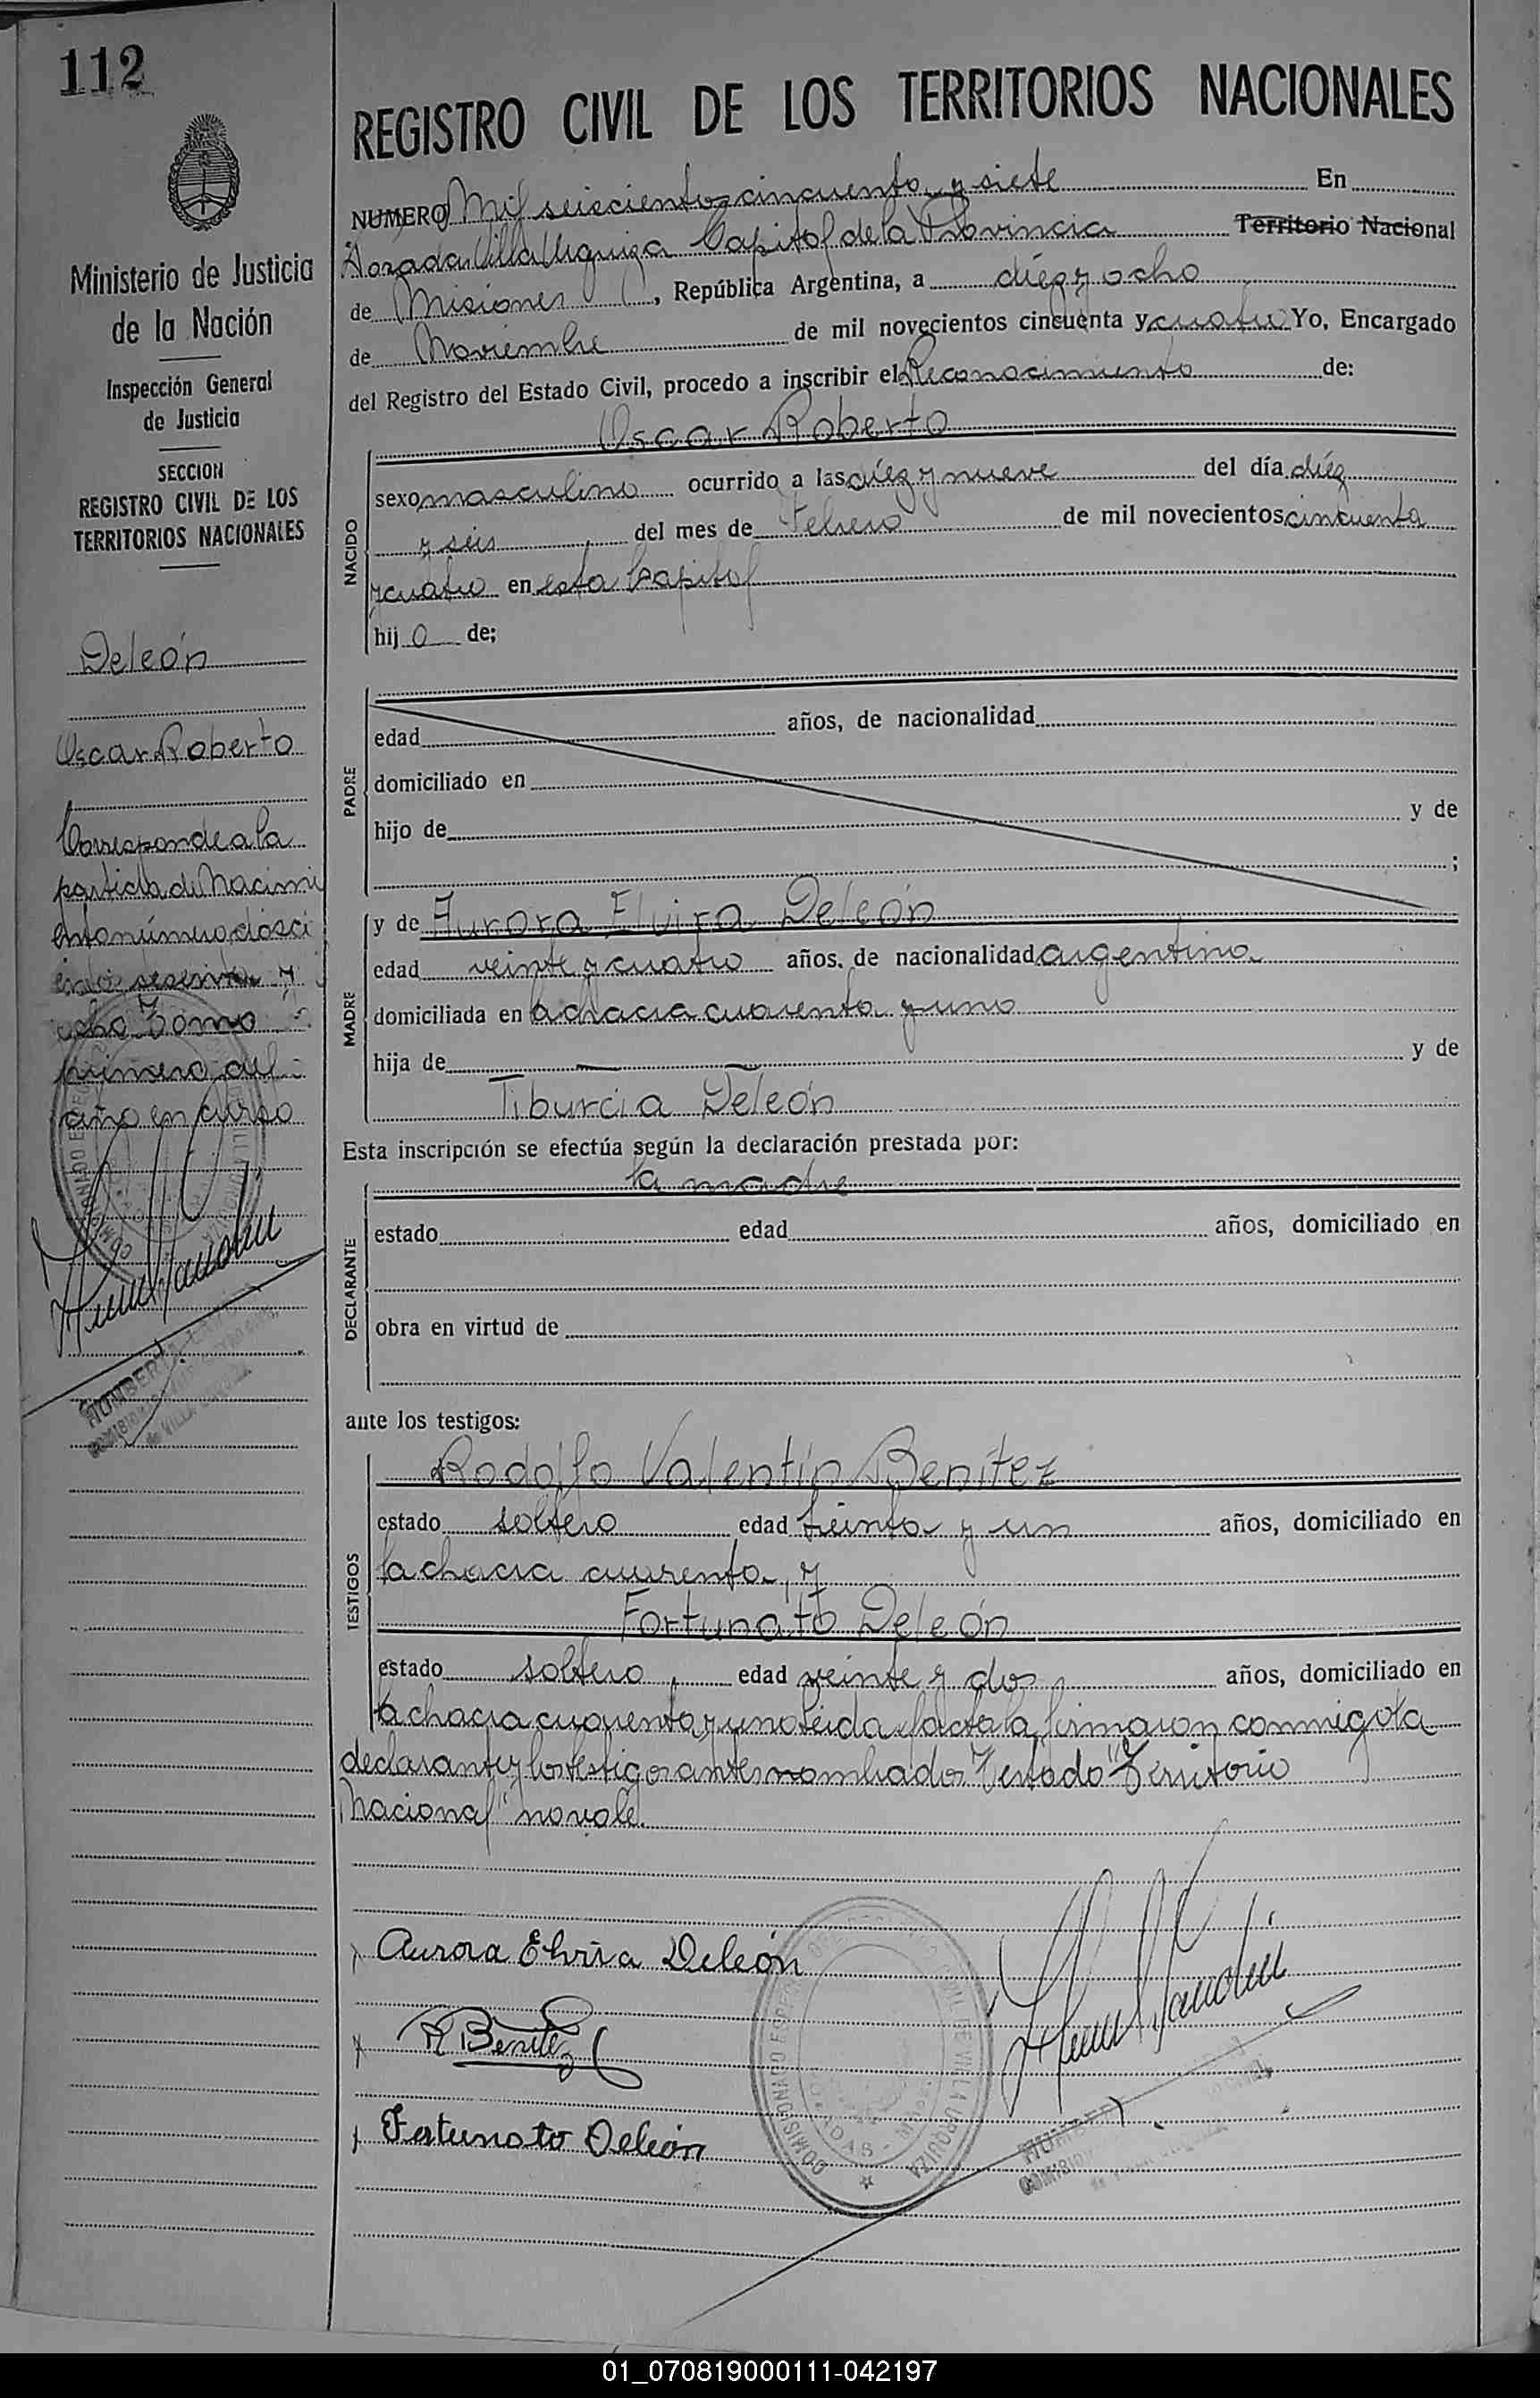 112
Ministerio de Justicia
de la Nación
Inspección General
de Justicia
SECCION
REGISTRO CIVIL DE LOS
TERRITORIOS NACIONALES
Deleón
Oscar Roberto
Corresponde a la
partida de Nacimi
ento número dosci
entos sesenta y
ocho Tomo
primero del
año en curso
REGISTRO CIVIL DE LOS TERRITORIOS NACIONALES
NUMERO Mil seiscientos cincuenta y siete En
Posadas Villa Urquiza Capital de la Provincia Territorio Nacional
de Misiones, República Argentina, a diez y ocho
de Noviembre de mil novecientos cincuenta y cuatro Yo, Encargado
del Registro del Estado Civil, procedo a inscribir el Reconocimiento de:
Oscar Roberto
NACIDO
sexo masculino ocurrido a las diez y nueve del día diez
y seis del mes de Febrero de mil novecientos cincuenta
y cuatro en esta Capital
hij o de;
PADRE
edad años, de nacionalidad
domiciliado en
hijo de y de
;
MADRE
y de Aurora Elvira Deleón
edad veinte y cuatro años, de nacionalidad argentina
domiciliada en la chacra cuarenta y uno
hija de y de
Tiburcia Deleón
Esta inscripción se efectúa según la declaración prestada por:
la madre
DECLARANTE
estado edad años, domiciliado en
obra en virtud de
ante los testigos:
Rodolfo Valentín Benítez
TESTIGOS
estado soltero edad treinta y un años, domiciliado en
la chacra cuarenta, y
Fortunato Deleón
estado soltero, edad veinte y dos años, domiciliado en
la chacra cuarenta y uno Leida el acta la firmaron conmigo la
declarante y los testigos antes nombrados Testado "Territorio
Nacional" no vale.
Aurora Elvira Deleón
R Benitez
Fortunato Deleón
COMISIONADO VILLA URQUIZA
01_070819000111-042197